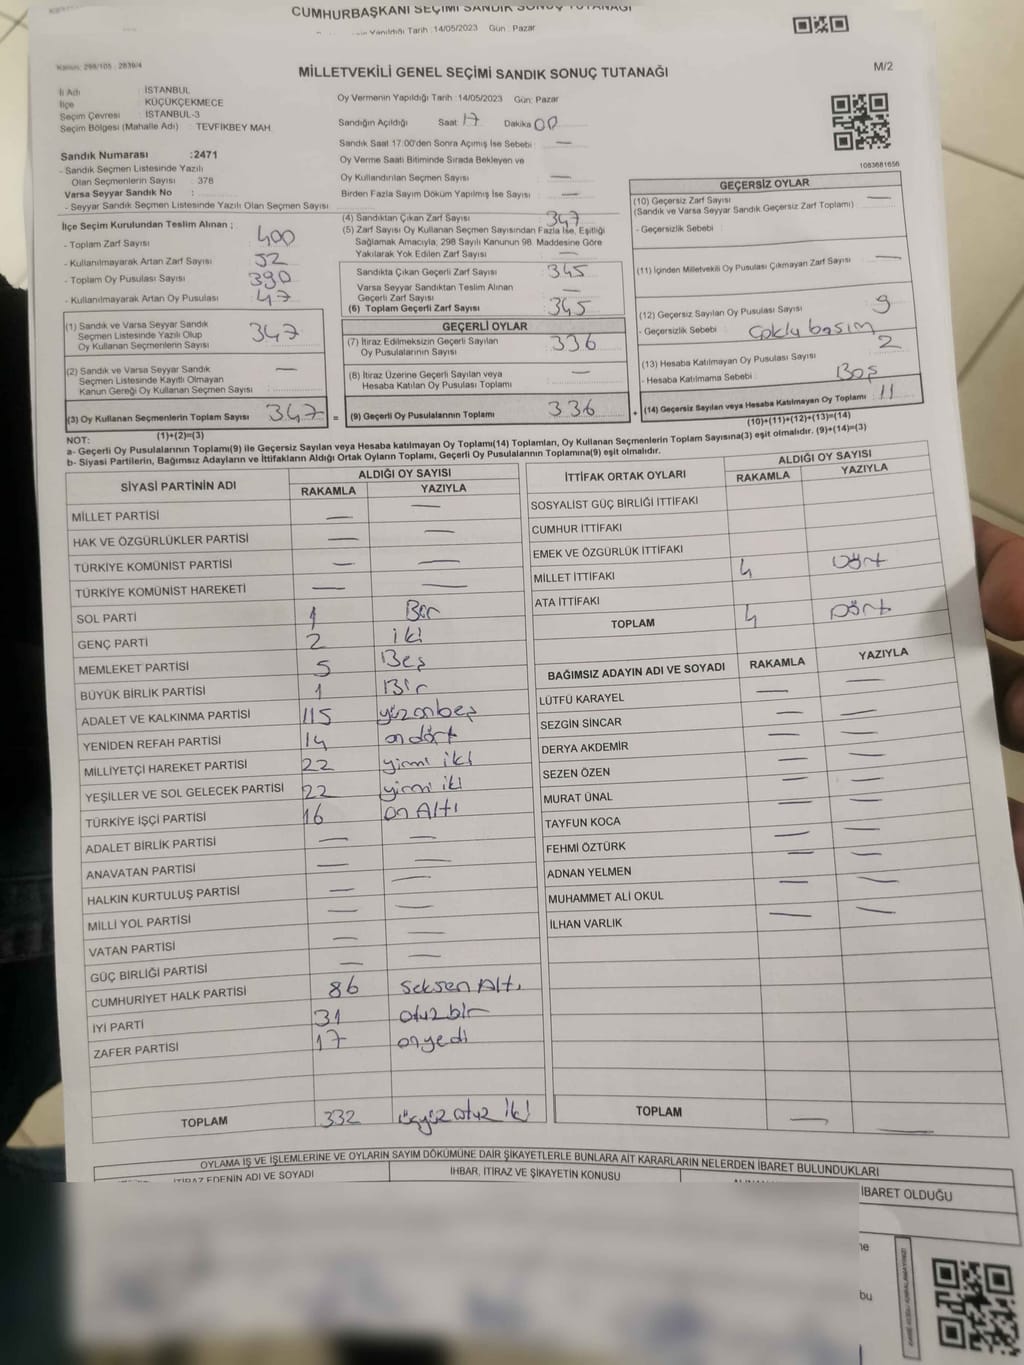 CUMHURBAŞKANI SEÇİMİ SANDIK SONUÇ TUTANAĞI
Yapıldığı Tarih : 14/05/2023 Gün : Pazar
Kanun: 298/105 : 2839/4
MİLLETVEKİLİ GENEL SEÇİMİ SANDIK SONUÇ TUTANAĞI
M/2
İl Adı : İSTANBUL
İlçe : KÜÇÜKÇEKMECE
Seçim Çevresi : İSTANBUL-3
Seçim Bölgesi (Mahalle Adı) : TEVFİKBEY MAH.
Oy Vermenin Yapıldığı Tarih :14/05/2023 Gün: Pazar
Sandığın Açıldığı Saat : 17 Dakika : 00
Sandık Saat 17.00'den Sonra Açılmış İse Sebebi : —
Oy Verme Saati Bitiminde Sırada Bekleyen ve
Oy Kullandırılan Seçmen Sayısı : —
Birden Fazla Sayım Döküm Yapılmış İse Sayısı : —
Sandık Numarası :2471
- Sandık Seçmen Listesinde Yazılı
Olan Seçmenlerin Sayısı : 378
Varsa Seyyar Sandık No :
- Seyyar Sandık Seçmen Listesinde Yazılı Olan Seçmen Sayısı :
1083681656
İlçe Seçim Kurulundan Teslim Alınan ;
- Toplam Zarf Sayısı : 400
- Kullanılmayarak Artan Zarf Sayısı : 52
- Toplam Oy Pusulası Sayısı : 390
- Kullanılmayarak Artan Oy Pusulası : 47
(1) Sandık ve Varsa Seyyar Sandık
Seçmen Listesinde Yazılı Olup
Oy Kullanan Seçmenlerin Sayısı : 347
(2) Sandık ve Varsa Seyyar Sandık
Seçmen Listesinde Kayıtlı Olmayan
Kanun Gereği Oy Kullanan Seçmen Sayısı : —
(3) Oy Kullanan Seçmenlerin Toplam Sayısı : 347
(1)+(2)=(3)
(4) Sandıktan Çıkan Zarf Sayısı : 347
(5) Zarf Sayısı Oy Kullanan Seçmen Sayısından Fazla İse, Eşitliği
Sağlamak Amacıyla; 298 Sayılı Kanunun 98. Maddesine Göre
Yakılarak Yok Edilen Zarf Sayısı : —
Sandıkta Çıkan Geçerli Zarf Sayısı : 345
Varsa Seyyar Sandıktan Teslim Alınan
Geçerli Zarf Sayısı : —
(6) Toplam Geçerli Zarf Sayısı : 345
GEÇERLİ OYLAR
(7) İtiraz Edilmeksizin Geçerli Sayılan
Oy Pusulalarının Sayısı : 336
(8) İtiraz Üzerine Geçerli Sayılan veya
Hesaba Katılan Oy Pusulası Toplamı : —
= (9) Geçerli Oy Pusulalarının Toplamı : 336 +
GEÇERSİZ OYLAR
(10) Geçersiz Zarf Sayısı : —
(Sandık ve Varsa Seyyar Sandık Geçersiz Zarf Toplamı)
- Geçersizlik Sebebi :
(11) İçinden Milletvekili Oy Pusulası Çıkmayan Zarf Sayısı : —
(12) Geçersiz Sayılan Oy Pusulası Sayısı : 9
- Geçersizlik Sebebi : Çoklu basım
(13) Hesaba Katılmayan Oy Pusulası Sayısı : 2
- Hesaba Katılmama Sebebi : Boş
(14) Geçersiz Sayılan veya Hesaba Katılmayan Oy Toplamı : 11
(10)+(11)+(12)+(13)=(14)
NOT:
a- Geçerli Oy Pusulalarının Toplamı(9) ile Geçersiz Sayılan veya Hesaba katılmayan Oy Toplamı(14) Toplamları, Oy Kullanan Seçmenlerin Toplam Sayısına(3) eşit olmalıdır. (9)+(14)=(3)
b- Siyasi Partilerin, Bağımsız Adayların ve İttifakların Aldığı Ortak Oyların Toplamı, Geçerli Oy Pusulalarının Toplamına(9) eşit olmalıdır.
SİYASİ PARTİNİN ADI ALDIĞI OY SAYISI
RAKAMLA YAZIYLA
MİLLET PARTİSİ — —
HAK VE ÖZGÜRLÜKLER PARTİSİ — —
TÜRKİYE KOMÜNİST PARTİSİ — —
TÜRKİYE KOMÜNİST HAREKETİ — —
SOL PARTİ 1 Bir
GENÇ PARTİ 2 iki
MEMLEKET PARTİSİ 5 Beş
BÜYÜK BİRLİK PARTİSİ 1 Bir
ADALET VE KALKINMA PARTİSİ 115 yüzonbeş
YENİDEN REFAH PARTİSİ 14 on dört
MİLLİYETÇİ HAREKET PARTİSİ 22 yirmi iki
YEŞİLLER VE SOL GELECEK PARTİSİ 22 yirmi iki
TÜRKİYE İŞÇİ PARTİSİ 16 on Altı
ADALET BİRLİK PARTİSİ — —
ANAVATAN PARTİSİ — —
HALKIN KURTULUŞ PARTİSİ — —
MİLLİ YOL PARTİSİ — —
VATAN PARTİSİ — —
GÜÇ BİRLİĞİ PARTİSİ — —
CUMHURİYET HALK PARTİSİ 86 Seksen Altı
İYİ PARTİ 31 otuz bir
ZAFER PARTİSİ 17 onyedi
TOPLAM 332 üçyüz otuz iki
İTTİFAK ORTAK OYLARI ALDIĞI OY SAYISI
RAKAMLA YAZIYLA
SOSYALİST GÜÇ BİRLİĞİ İTTİFAKI
CUMHUR İTTİFAKI
EMEK VE ÖZGÜRLÜK İTTİFAKI
MİLLET İTTİFAKI 4 Dört
ATA İTTİFAKI
TOPLAM 4 Dört
BAĞIMSIZ ADAYIN ADI VE SOYADI RAKAMLA YAZIYLA
LÜTFÜ KARAYEL — —
SEZGİN SİNCAR — —
DERYA AKDEMİR — —
SEZEN ÖZEN — —
MURAT ÜNAL — —
TAYFUN KOCA — —
FEHMİ ÖZTÜRK — —
ADNAN YELMEN — —
MUHAMMET ALİ OKUL — —
İLHAN VARLIK — —
TOPLAM — —
OYLAMA İŞ VE İŞLEMLERİNE VE OYLARIN SAYIM DÖKÜMÜNE DAİR ŞİKAYETLERLE BUNLARA AİT KARARLARIN NELERDEN İBARET BULUNDUKLARI
İTİRAZ EDENİN ADI VE SOYADI İHBAR, İTİRAZ VE ŞİKAYETİN KONUSU
İBARET OLDUĞU
ne
bu